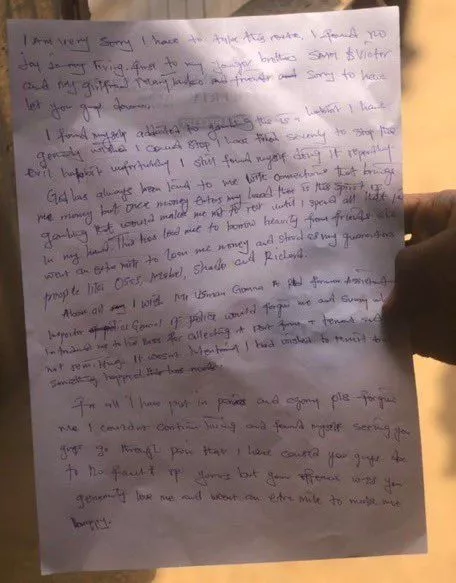 I Am very sorry I have to take this route, I found no
Joy in my living first to my younger brothers Sam & Victor
and my girlfriend and friends and sorry to have
let you guys down.
I found myself addicted to gambling this is a habit I have
genuinely wished I could stop I have tried severely to stop this
Evil habit unfortunately I still found myself doing it repeatly
God has always been kind to me with connections that brings
me money but once money enters my hand there is this spirit of
gambling that would makes me not to rest until I spend all
in my hand This has lead me to borrow heavily from friends who
went an extra mile to loan me money and stood as my guarantors
people like Osas, Mabel, and Richard.
Above all I wish Mr Usman Gomna A Rtd former Assistant
Inspector General of police would forgive me and
to his Boss for collecting A rent from a tenant and
not remitting. It wasn't intentional I had wished to remit but
something happed
For all I have put in pains and agony pls forgive
me I couldn't continue living and found myself seeing you
guys go through pain that I have caused you guys due
to no fault of yours but your offence was you
genuinely love me and went an extra mile to make me
happy.